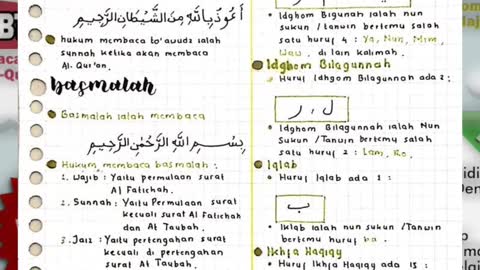 أَعُوْذُ بِاللهِ مِنَ الشَّيْطَانِ الرَّجِيْمِ
hukum membaca ta'awudz ialah
sunnah ketika akan membaca
Al-Qur'an.
basmalah
Basmalah ialah membaca
بِسْمِ اللهِ الرَّحْمٰنِ الرَّحِيْمِ
Hukum membaca basmalah :
1. Wajib : Yaitu permulaan surat
Al Fatichah.
2. Sunnah : Yaitu Permulaan surat
kecuali surat Al Fatichah
dan At Taubah.
3. Jaiz : Yaitu pertengahan surat
kecuali di pertengahan
surat At Taubah.
Idghom Bigunah ialah Nun
sukun / tanwin bertemu salah
satu huruf 4 : Ya, Nun, Mim,
Wau. di lain kalimah.
Idghom Bilagunnah
Huruf Idghom Bilagunnah ada 2 :
ل , ر
Idghom Bilagunnah ialah Nun
Sukun /Tanwin bertemu salah
satu huruf 2 : Lam, Ro.
Iqlab
Huruf Iqlab ada 1 :
ب
Iklab ialah nun sukun /Tanwin
bertemu huruf ba.
Ikhfa Haqiqy
Huruf Ikhfa Haqiqy ada 15 :